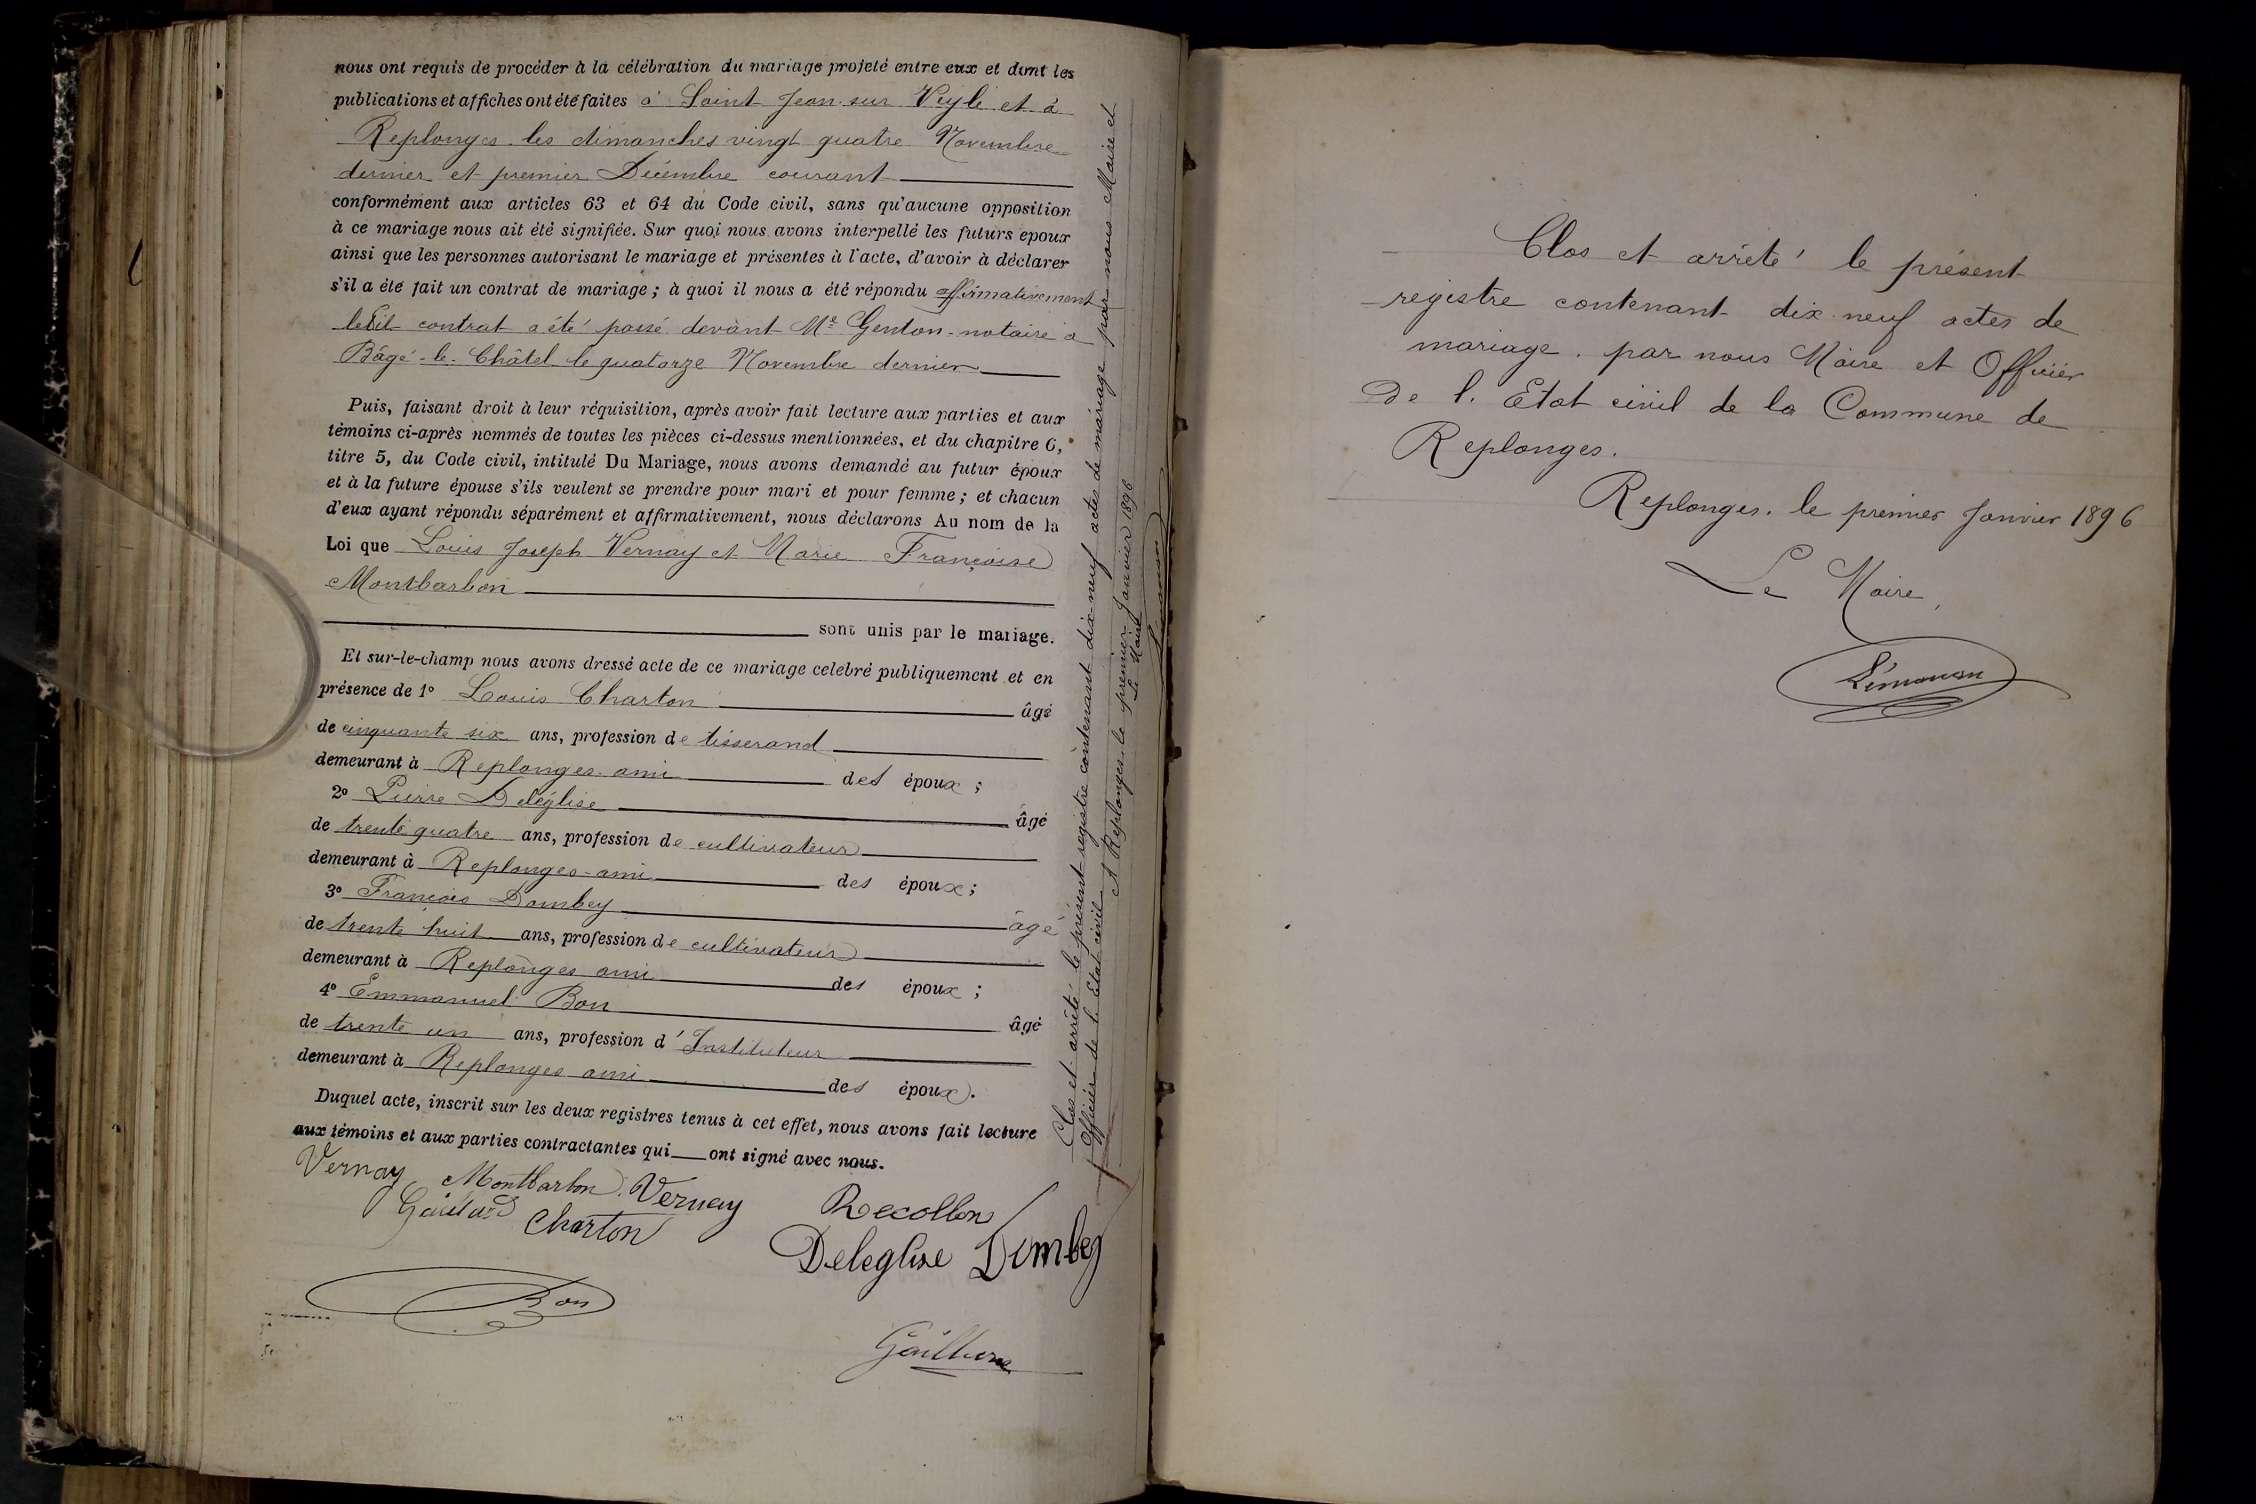 nous ont requis de procéder à la célébration du mariage projeté entre eux et dont les
publications et affiches ont été faites à Saint Jean sur Veyle et à
Replonges les dimanches vingt quatre Novembre
dernier et premier Décembre courant
conformément aux articles 63 et 64 du Code civil, sans qu'aucune opposition
à ce mariage nous ait été signifiée. Sur quoi nous avons interpellé les futurs epoux
ainsi que les personnes autorisant le mariage et présentes à l'acte, d'avoir à déclarer
s'il a été fait un contrat de mariage ; à quoi il nous a été répondu affirmativement
ledit contrat a été passé devant Me Genton notaire à
Bâgé-le-Châtel le quatorze Novembre dernier
Puis, faisant droit à leur réquisition, après avoir fait lecture aux parties et aux
témoins ci-après nommés de toutes les pièces ci-dessus mentionnées, et du chapitre 6,
titre 5, du Code civil, intitulé Du Mariage, nous avons demandé au futur époux
et à la future épouse s'ils veulent se prendre pour mari et pour femme ; et chacun
d'eux ayant répondu séparément et affirmativement, nous déclarons Au nom de la
Loi que Louis Joseph Vernay et Marie Françoise
Montbarbon
sont unis par le mariage.
Et sur-le-champ nous avons dressé acte de ce mariage celebré publiquement et en
présence de 1° Louis Charton âgé
de cinquante six ans, profession de tisserand
demeurant à Replonges ami des époux ;
2° Pierre Deléglise âgé
de trente quatre ans, profession de cultivateur
demeurant à Replonges-ami des époux ;
3° François Dombey âgé
de trente huit ans, profession de cultivateur
demeurant à Replonges ami des époux ;
4° Emmanuel Bon âgé
de trente un ans, profession d'Instituteur
demeurant à Replonges ami des époux.
Duquel acte, inscrit sur les deux registres tenus à cet effet, nous avons fait lecture
aux témoins et aux parties contractantes qui ont signé avec nous.
Vernay Montbarbon Vernay Recollon
Charton Deleglise Dombey
Bon
Clos et arrêté le présent registre contenant dix-neuf actes de mariage par nous Maire et
Officier de l'Etat civil
A Replonges, le premier Janvier 1896
Le Maire
Clos et arrêté le présent
registre contenant dix neuf actes de
mariage. par nous Maire et Officier
De l'Etat civil de la Commune de
Replonges.
Replonges. le premier Janvier 1896
Le Maire,